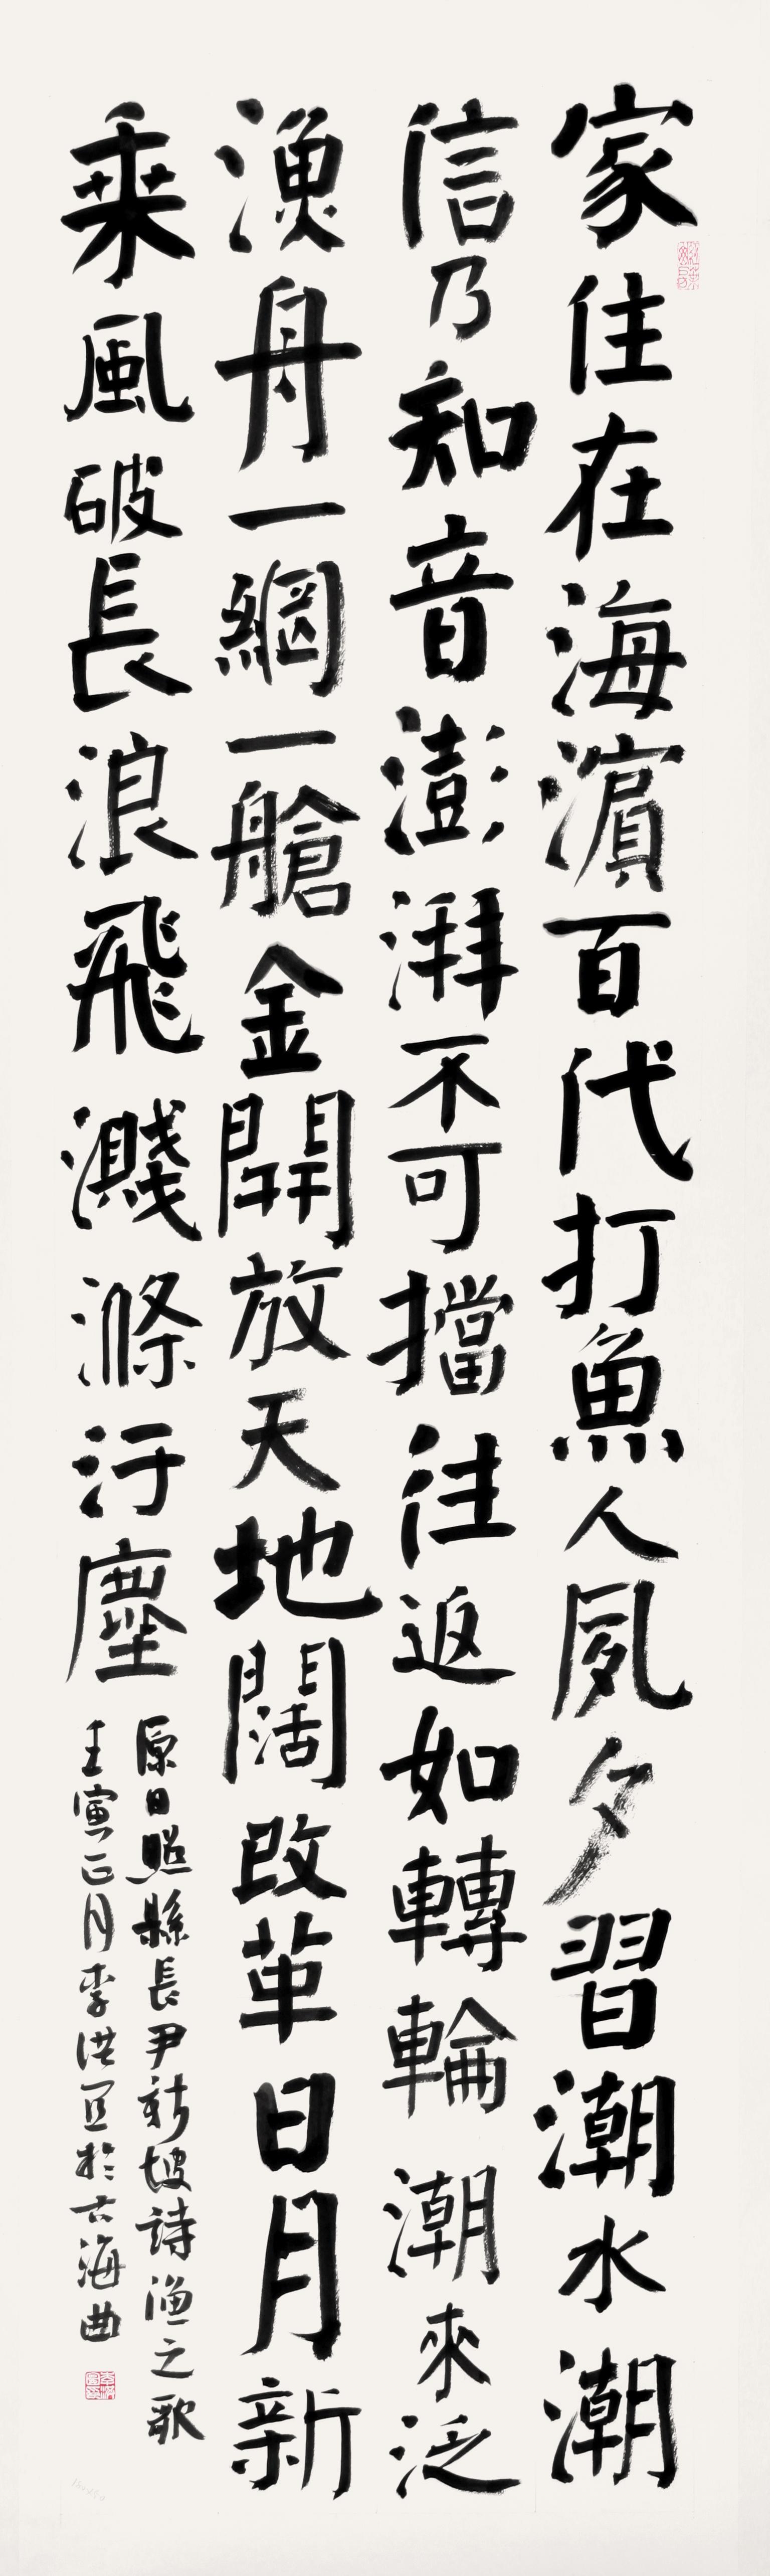 家住在海濱百代打魚人夙夕習潮水潮
信乃知音澎湃不可擋往返如轉輪潮來泛
漁舟一網一艙金開放天地闊改革日月新
乘風破長浪飛濺滌汙塵
原日照縣長尹新坡詩漁之歌
壬寅正月李洪宜於古海曲